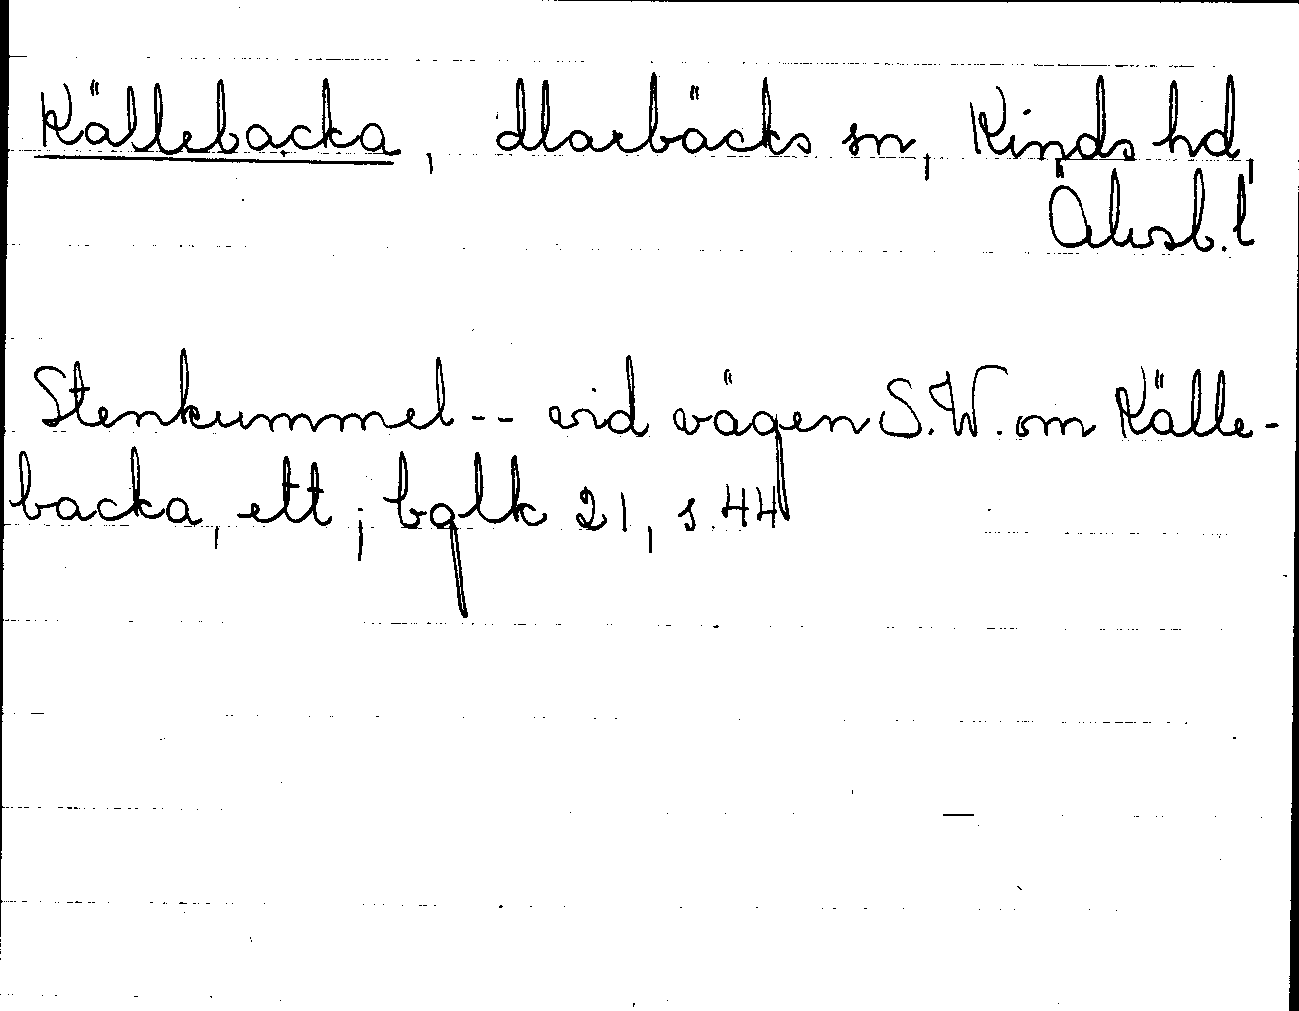 Källebacka, Marbäcks sn, Kinds hd,
Älvsb. l
Stenkummel -- vid vägen S.W. om Källe-
backa, ett; bglk 21, s 44